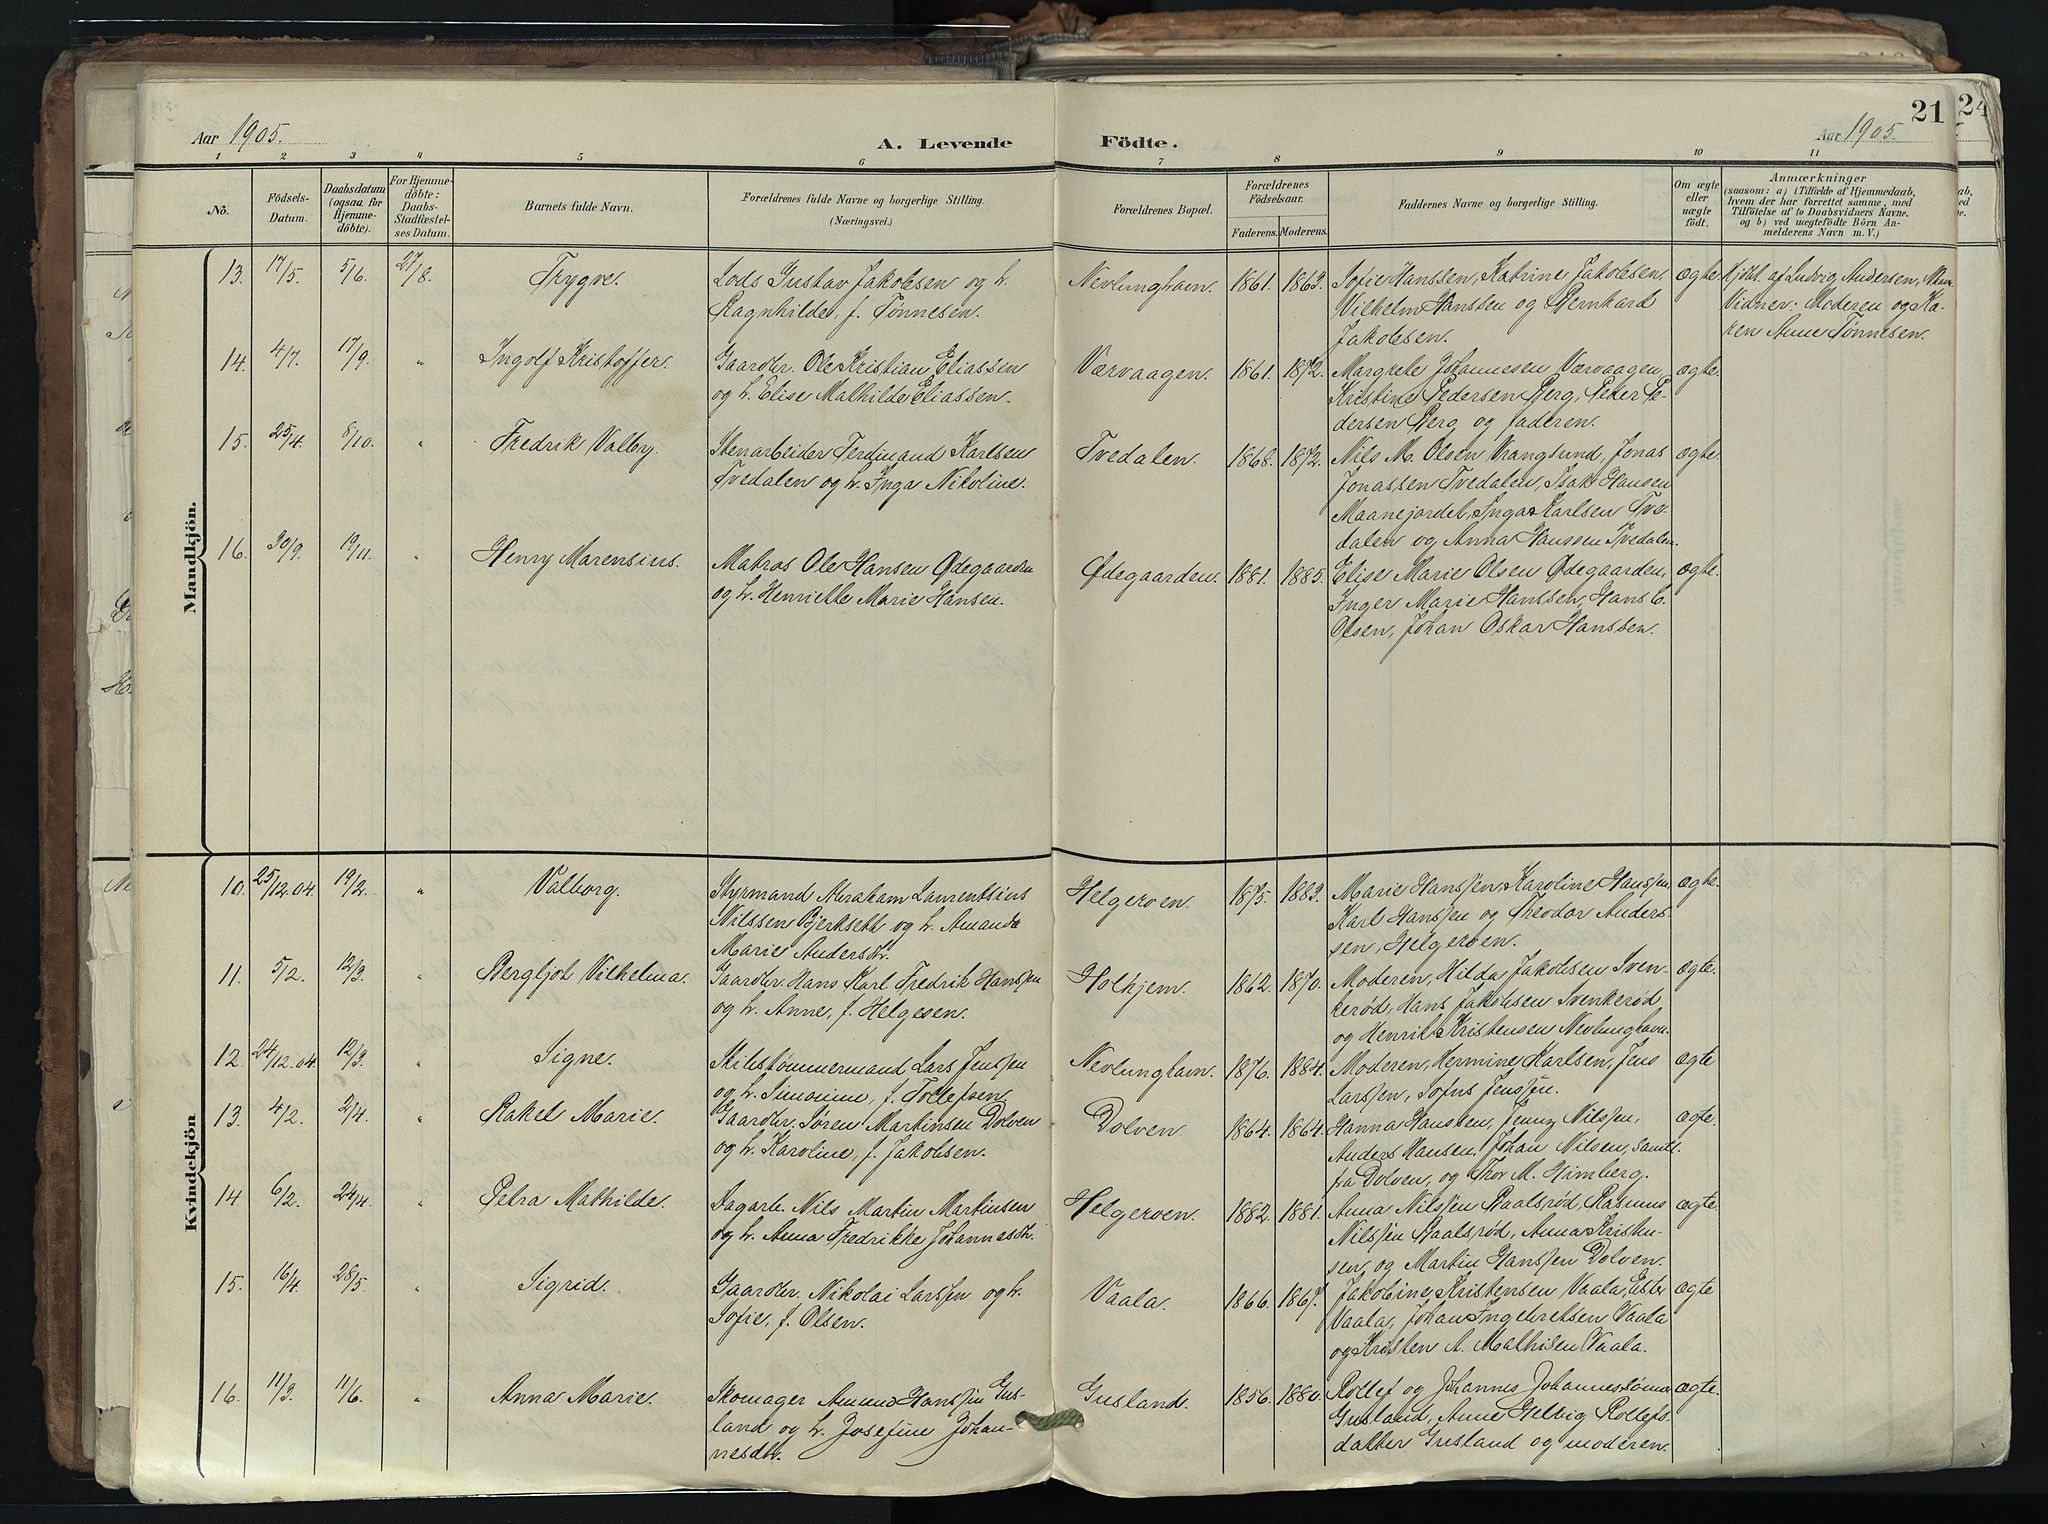 21
24
Aar 1905.
A. Levende Födte.
Aar 1905.
1 2 3 4 5 6 7 8 9 10 11
No.
Födsels-Datum.
Daabsdatum (ogsaa for Hjemmedöbte).
For Hjemmedöbte: Daabs-Stadfæstelses Datum.
Barnets fulde Navn.
Forældrenes fulde Navne og borgerlige Stilling. (Næringsvei.)
Forældrenes Bopæl.
Forældrenes Födselsaar.
Faderens. Moderens.
Faddernes Navne og borgerlige Stilling.
Om ægte eller uægte födt.
Anmærkninger
(saasom: a) i Tilfælde af Hjemmedaab,
hvem der har forrettet samme, med
Tilföielse af to Daabsvidners Navne.
og b) ved uægtefödte Börn An-
melderens Navn m. V.)
Mandkjön.
13. 17/5. 5/6. 27/8. Trygve.
Lods Gustav Jakobsen og h.
Ragnhilde, f. Tønnesen.
Nevlunghavn. 1861. 1863.
Sofie Hanssen, Katrine Jakobsen,
Vilhelm Hanssen og Bernhard
Jakobsen.
ægte.
Hjdbt. af Ludvig Andersen,
Vidner: Moderen og Ka-
ren Anne Tønnesen.
14. 4/7. 17/9. " Ingolf Kristoffer.
Gaardbr. Ole Kristian Eliassen
og h. Elise Mathilde Eliassen.
Værvaagen. 1861. 1872.
Margrete Johannesen Værvaagen,
Kristine Pedersen Berg, Peder Pe-
dersen Berg og faderen.
ægte.
15. 25/4. 8/10. " Fredrik Valby.
Stenarbeider Ferdinand Karlsen
Tvedalen og h. Inga Nikoline.
Tvedalen. 1868. 1872.
Nils M. Olsen Vranglund, Jonas
Jonassen Tvedalen, Isak Hansen
Maanejordet, Inga Karlsen Tve-
dalen og Anna Hanssen Tvedalen.
ægte.
16. 30/9. 19/11. " Henry Marensius.
Matros Ole Hansen Ødegaarden
og h. Henriette Marie Hansen.
Ødegaarden. 1881. 1885.
Elise Marie Olsen Ødegaarden,
Inger Marie Hanssen, Hans C.
Olsen, Johan Oskar Hanssen.
ægte.
Kvindekjön
10. 25/12.04 19/2. " Valborg.
Styrmand Abraham Laurentsius
Nilssen Bjerksetb og h. Amanda
Marie Andersdt.
Helgeroen. 1875. 1883.
Marie Hanssen, Karoline Hanssen,
Karl Hanssen og Theodor Anders-
sen, Helgeroen.
ægte.
11. 5/2. 12/3. " Bergljot Vilhelma.
Gaardbr. Hans Karl Fredrik Hanssen
og h. Anne, f. Helgesen.
Holhjem. 1862. 1870.
Moderen, Hilda Jakobsen Sven-
kerød, Hans Jakobsen Svenkerød
og Henrik Kristensen Nevlunghavn.
ægte.
12. 24/12.04. 12/3. " Signe.
Skibstømmermand Lars Jenssen
og h. Simonine, f. Tollefsen.
Nevlunghavn. 1876. 1884.
Moderen, Hermine Karlsen, Jens
Larssen, Sofus Jenssen.
ægte
13. 4/2. 2/4. " Rakel Marie.
Gaardbr. Søren Martinsen Dolven
og h. Karoline, f. Jakobsen.
Dolven. 1864. 1864.
Hanna Hansen, Jenny Nilssen,
Anders Hansen, Johan Nilsen, samtl.
fra Dolven, og Thor M. Himberg.
ægte.
14. 6/2. 24/4. " Petra Mathilde.
Dagarb. Nils Martin Martinsen
og h. Anna Fredrikke Johannesdt.
Helgeroen. 1882. 1881.
Anna Nilssen Paalsrød, Rasmus
Nilssen Paalsrød, Anna Kristen-
sen, og Martin Hanssen Dolven.
ægte.
15. 16/4. 28/5. " Sigrid.
Gaardbr. Nikolai Larssen og h.
Sofie, f. Olsen.
Vaala. 1866. 1867.
Jakobine Kristensen Vaala, Ester
Vaala, Johan Ingebretsen Vaala
og Kristen A. Mathisen Vaala.
ægte
16. 11/3. 11/6. " Anna Marie.
Skomager Amund Hanssen Gus-
land og h. Josefine Johan-
nesdt.
Gusland. 1856. 1880.
Rollef og Johannes Johannessønner
Gusland, Anne Helvig Rollefs-
datter Gusland og moderen.
ægte.